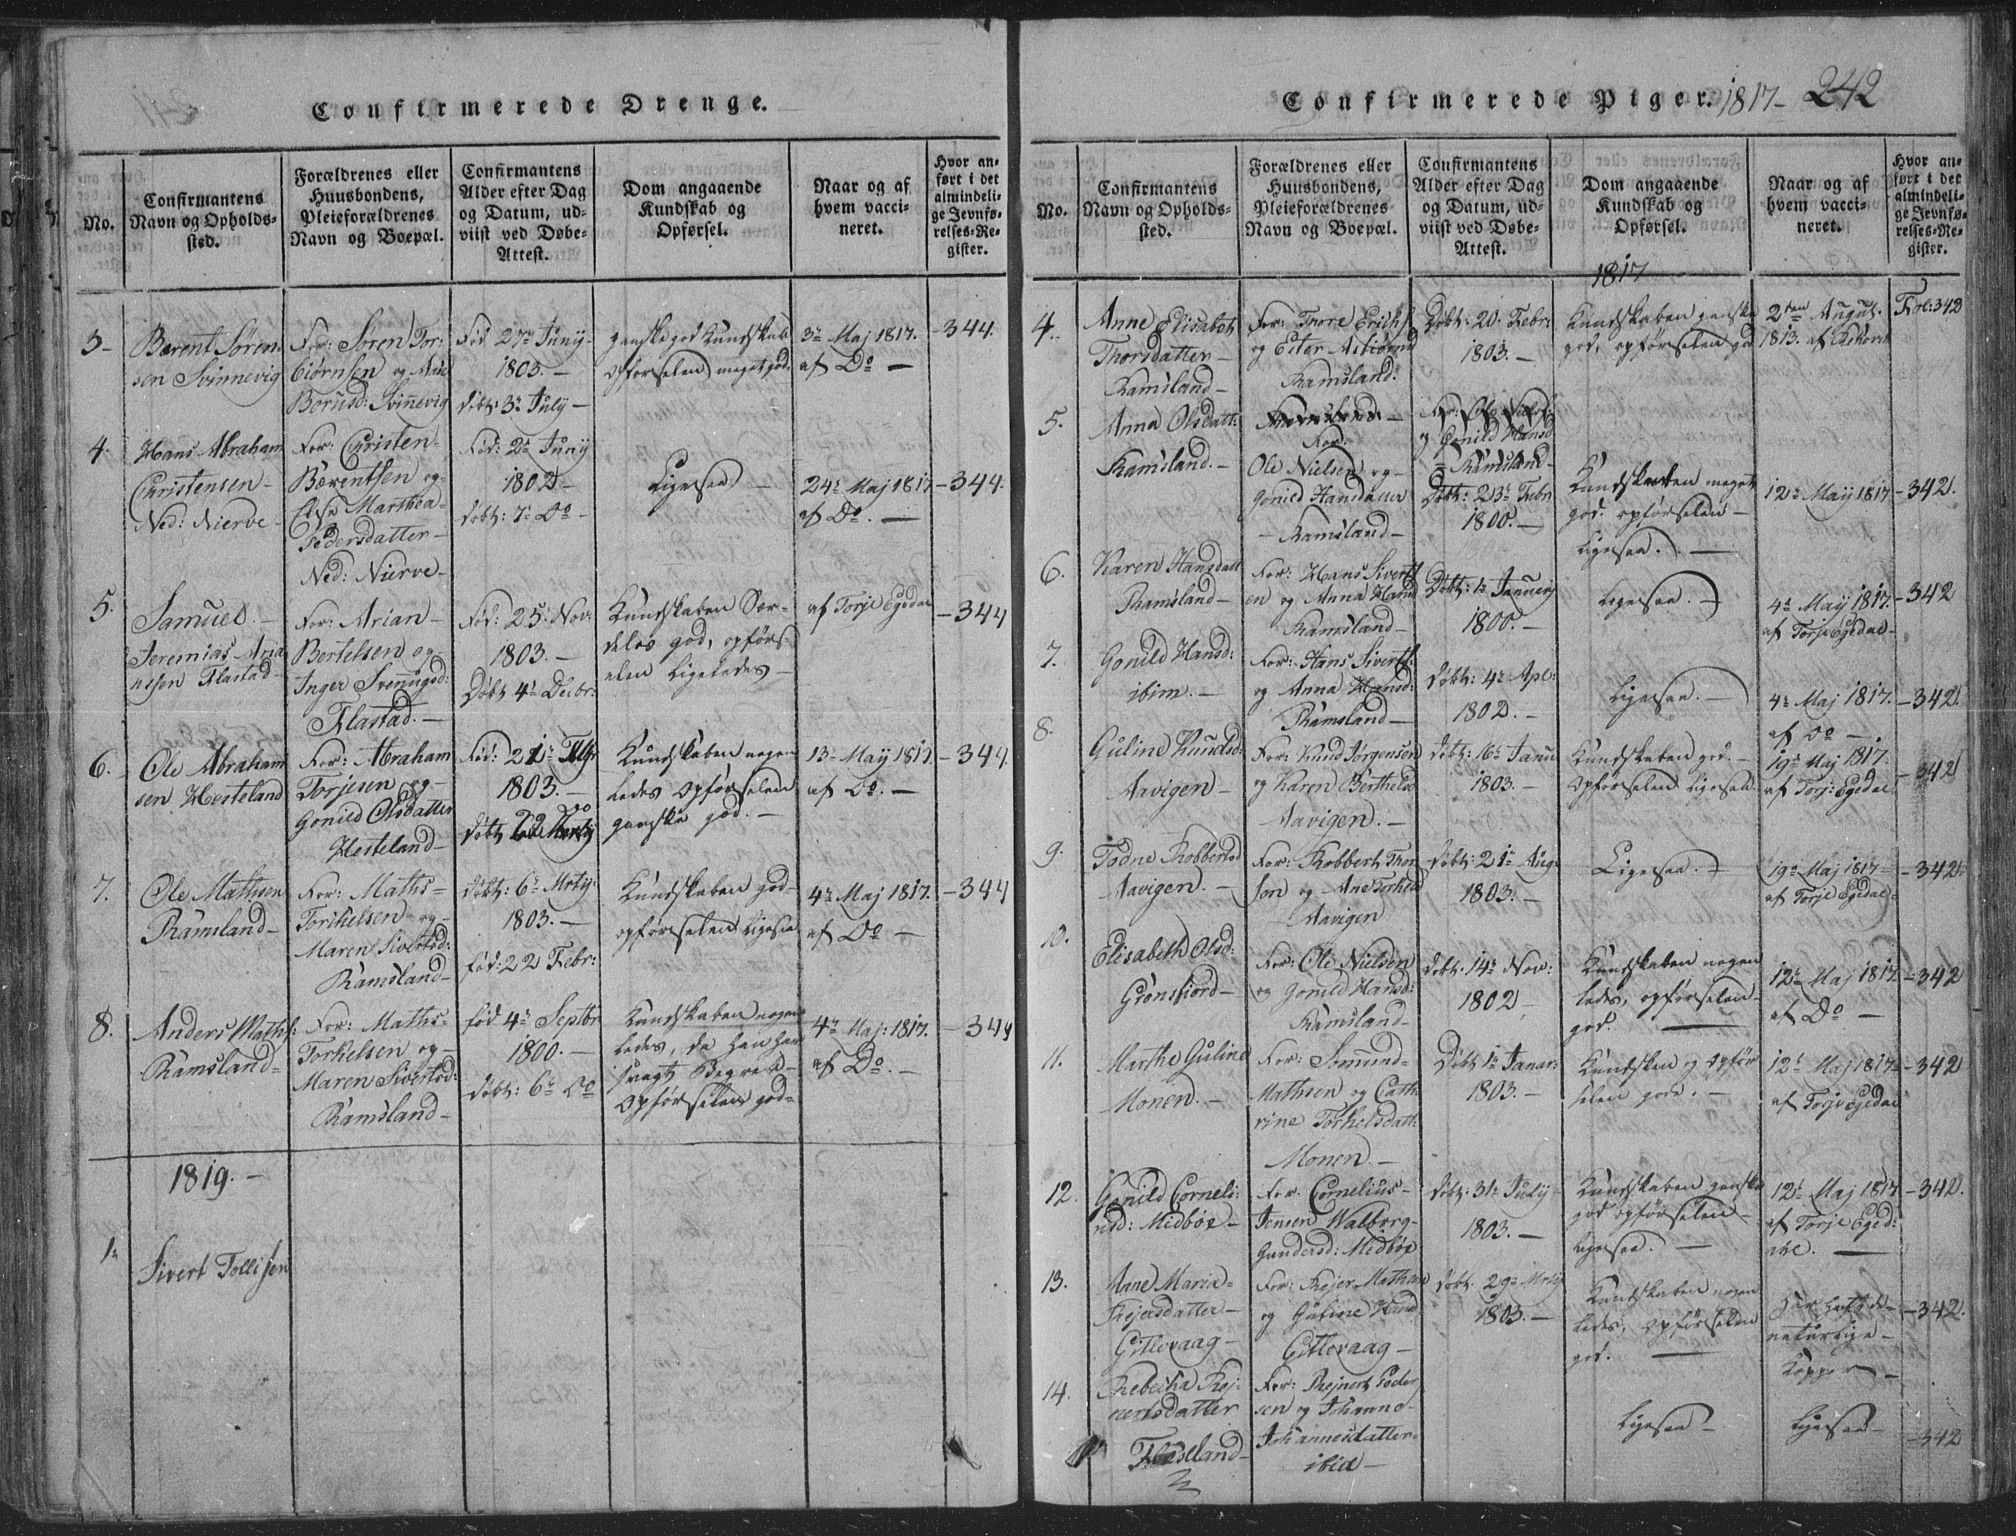 Confirmerede Drenge.
No.
Confirmantens
Navn og Opholds-
sted.
Forældrenes eller
Huusbondens,
Pleieforældrenes
Navn og Boepæl.
Confirmantens
Alder efter Dag
og Datum, ud-
viist ved Døbe-
Attest.
Dom angaaende
Kundskab og
Opførsel.
Naar og af
hvem vacci-
neret.
Hvor an-
ført i det
almindeli-
ge Jevnfø-
relses-Re-
gister.
3-
Bærent Søren-
sen Svinnevig
For: Søren Tor-
biørnsen og Ane
Svinnevig
Fød 27de Juny
1803.-
døbt: 3de July-
ganske god Kundskab
Opførselen meget god.
3de Maj 1817.
af Do -
-344.
4.
Hans Abraham
Christensen-
Ned: Nierve-
For: Christen-
Bærentsen og-
Marthea-
Pedersdatter-
Ned: Nierve-
Fød: 2de Juny
1802-
døbt: 7de Do-
Ligesaa -
24de Maj 1817
af Do. -
-344.
5.
Samuel.-
Jeremias Aria
nssen Flastad-
For: Arian-
Bertelsen og-
Inger
Flastad.-
Fød: 25: Nov:
1803.-
Døbt 4de Decbr:
Kundskaben Sær-
deles god, opførs-
elen Ligeledes-
af Torje Egedal
-344
6.
Ole Abraham
sen Hesteland
For: Abraham
Torjesen og-
Gonild Olsdatter
Hesteland-
Fød: 21de
1803.-
døbt
Kundskaben nogen
ledes Opførselen
ganske god.-
13de May 1817.
af Do. -
-344.
7.
Ole Mathsen
Ramsland-
For: Maths-
Torkelsen og-
Maren Sivertsd:
Ramsland-
døbt: 6de Mrty:
1803.-
fød: 22 Febr:
Kundskaben god-
opførselen Ligesaa
4de Maj 1817.
af Do -
-344
8.
Anders Maths:
Ramsland-
For: Maths-
Torkelsen og-
Maren Sivertsd:
Ramsland-
fød 4de Septbr
1800.-
døbt: 6de Do
Kundskaben nogen
ledes, da han har
svagt Begreb-
Opførselen god-
4de Maj: 1817.
af Do. -
-344
1819.-
1.
Sivert Tollisen
Confirmerede Piger. 1817- 242
No.
Confirmantens
Navn og Opholds-
sted.
Forældrenes eller
Huusbondens,
Pleieforældrenes
Navn og Boepæl.
Confirmantens
Alder efter Dag
og Datum, ud-
viist ved Døbe-
Attest.
Dom angaaende
Kundskab og
Opførsel.
Naar og af
hvem vacci-
neret.
Hvor an-
ført i det
almindeli-
ge Jevnfø-
relses-Re-
gister.
1817
4.
Anne Elisabet
Thorsdatter-
Ramsland-
For: Thore Erichs
og Ester
Ramsland.
Døbt: 20. Febr:
1803.-
Kundskaben ganske
god, opførselen god
2den August
1813. af
Fol: 342
5.
Anna Olsdatt:
Ramsland.-
For:
Ole Nielsen og-
Gonild Hansdatter
-Ramsland-
For: Ole Niels:
og Gonild Hansd
-Ramsland-
Døbt: 23de Febr
1800.-
Kundskaben meget
god. opførselen-
Ligesaa. -
12te May 1817
-342.
6.
Karen Hansdatt
Ramsland-
For: Hans Siverts
en og Anna Hansd
Ramsland-
Døbt: 1de January
1800.-
Ligesaa. -
4de May 1817.
af Torje Egedal-
-342
7.
Gonild Hansd:
ibim.-
For: Hans Siverts:
og Anna Hansd:
Ramsland-
døbt: 4de Apl:
1802.-
Ligesaa.-
4de Maj 1817.
af Do -
-342.
8.
Guline Knudsd:
Aavigen-
For: Knud Jørgensen
og Karen Berthelsd
Aavigen.-
døbt: 16de Janu
1803.-
Kundskaben god.-
Opførselen Ligesaa.
19de Maj 1817.
af Torj: Egedal
-342
9.
Todne Robbertsd
Aavigen.-
For: Robbert Thor
sen og Ane Torkelsd
Aavigen
døbt: 21de Aug:
1803.-
Ligesaa.-
19de Maj 1817-
af Torje Egedal-
-342.
10.
Elisabeth Olsd:
Grønsfiord-
For: Ole Nielsen
og Gonild Hansd:
Ramsland-
døbt 14de Nov:
1802
Kundskaben nogen
ledes, opførselen-
god. -
12te Maj 1817-
af Do -
-342
11.
Marthe Guline
Monen.-
For:
Mathsen og Cath
rine Torkelsdatt:
Monen.-
Døbt 1de Januar:
1803.-
Kundsken og Opfør
selen gode.-
12te Maj 1817
af Torje Egedal
-342
12.
Gonild Corneli-
usd: Midbøe-
For: Cornelius-
Jensen Walborg-
Gundersd: Midbøe
døbt: 31de July-
1803.-
Kundskaben ganske
god opførselen-
ligesaa. -
12te Maj 1817
af Torje Eged:
ahl. -
-342.
13.
Anne Maria-
Rejersdatter-
Gitlevaag-
For: Rejer Mathsen
og Guline Hansd
Gitlevaag-
døbt. 29de Mrty
1803.-
Kundskaben nogen
ledes, Opførselen
god. -
Har havt de-
naturlige-
Kopper-
-342.
14.
Rebecka Rej-
nertsdatter
Flaseland-
For: Rejnert Peder
sen og Johanne-
Johannesdatter-
ibid-
Ligesaa-
Ligesaa-
-342